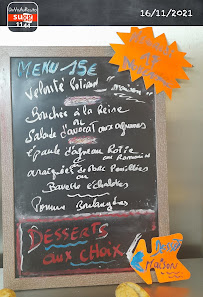 16/11/2021
MENU 15€
Velouté Potiron "maison"
Bouchée à la Reine
ou
Salade d'avocat aux agrumes
épaule d'agneau Rôtie
au Romarin
ou
Bavette échalotes
Pommes Boulangères
DESSERTS
aux CHOIX
maison